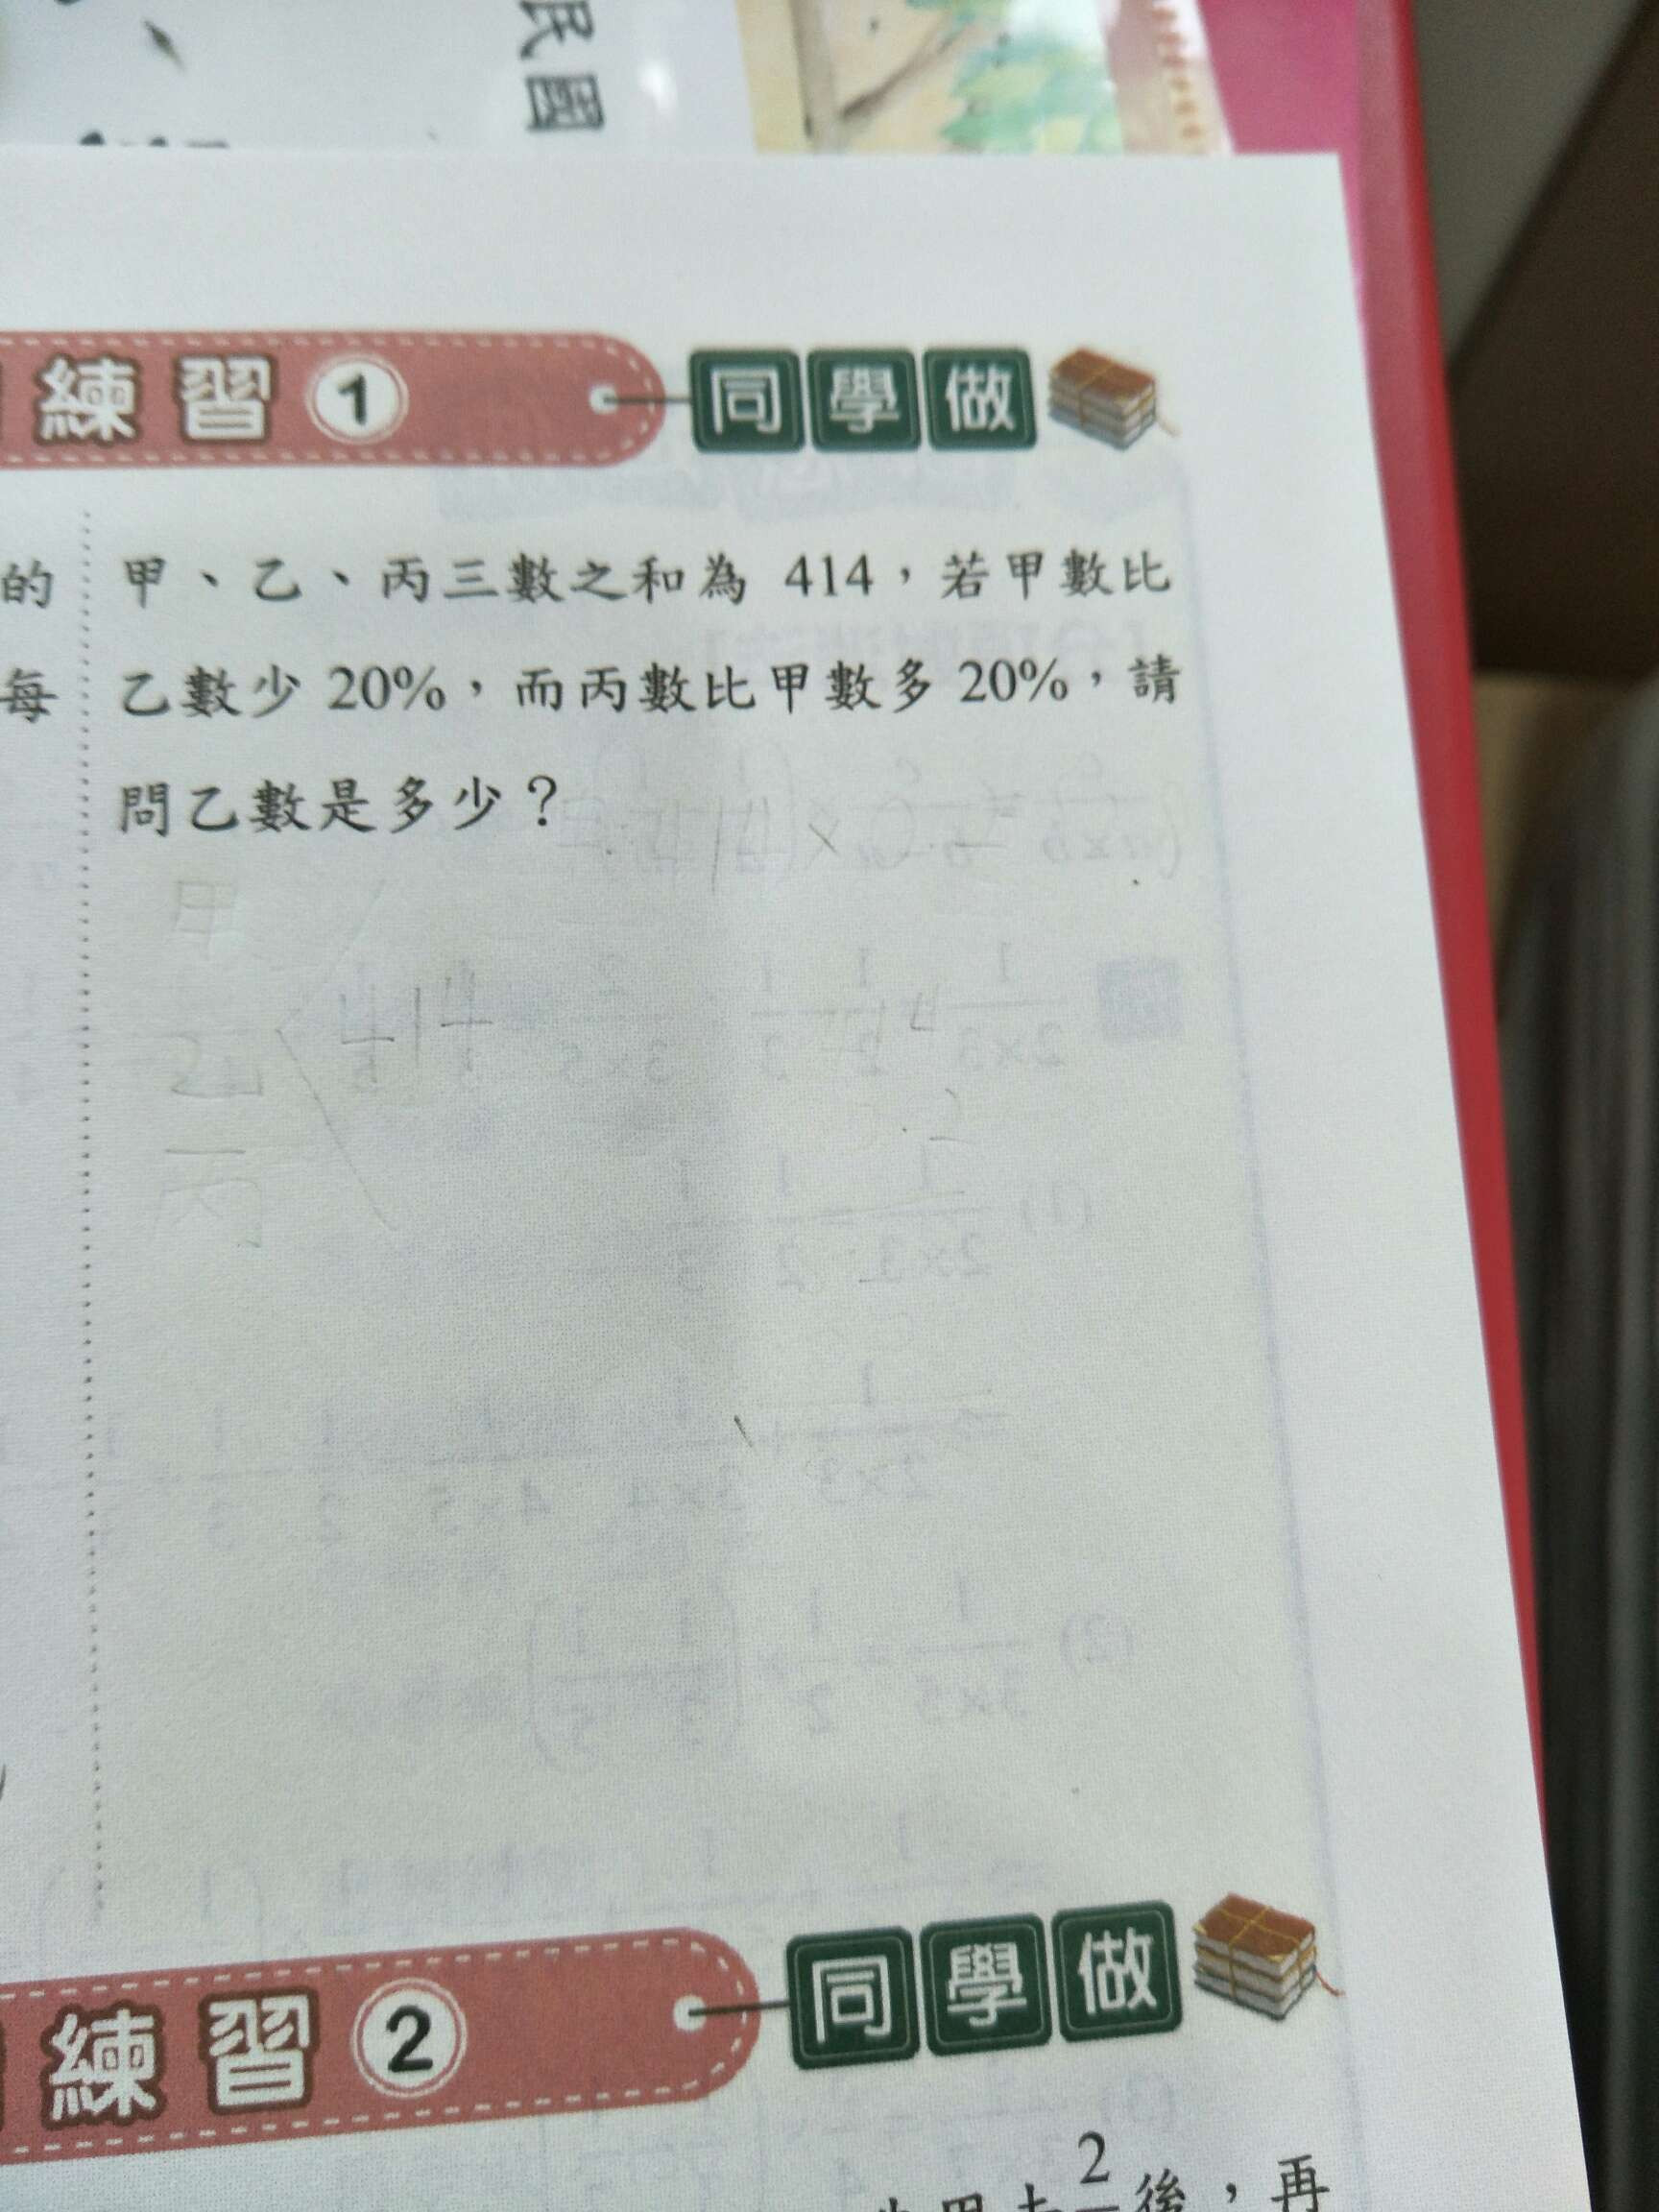 民國
練習 1 同學做
的
甲、乙、丙三數之和為 414，若甲數比
每
乙數少 20%，而丙數比甲數多 20%，請
問乙數是多少？
甲
乙
丙
練習 2 同學做
2
後，再